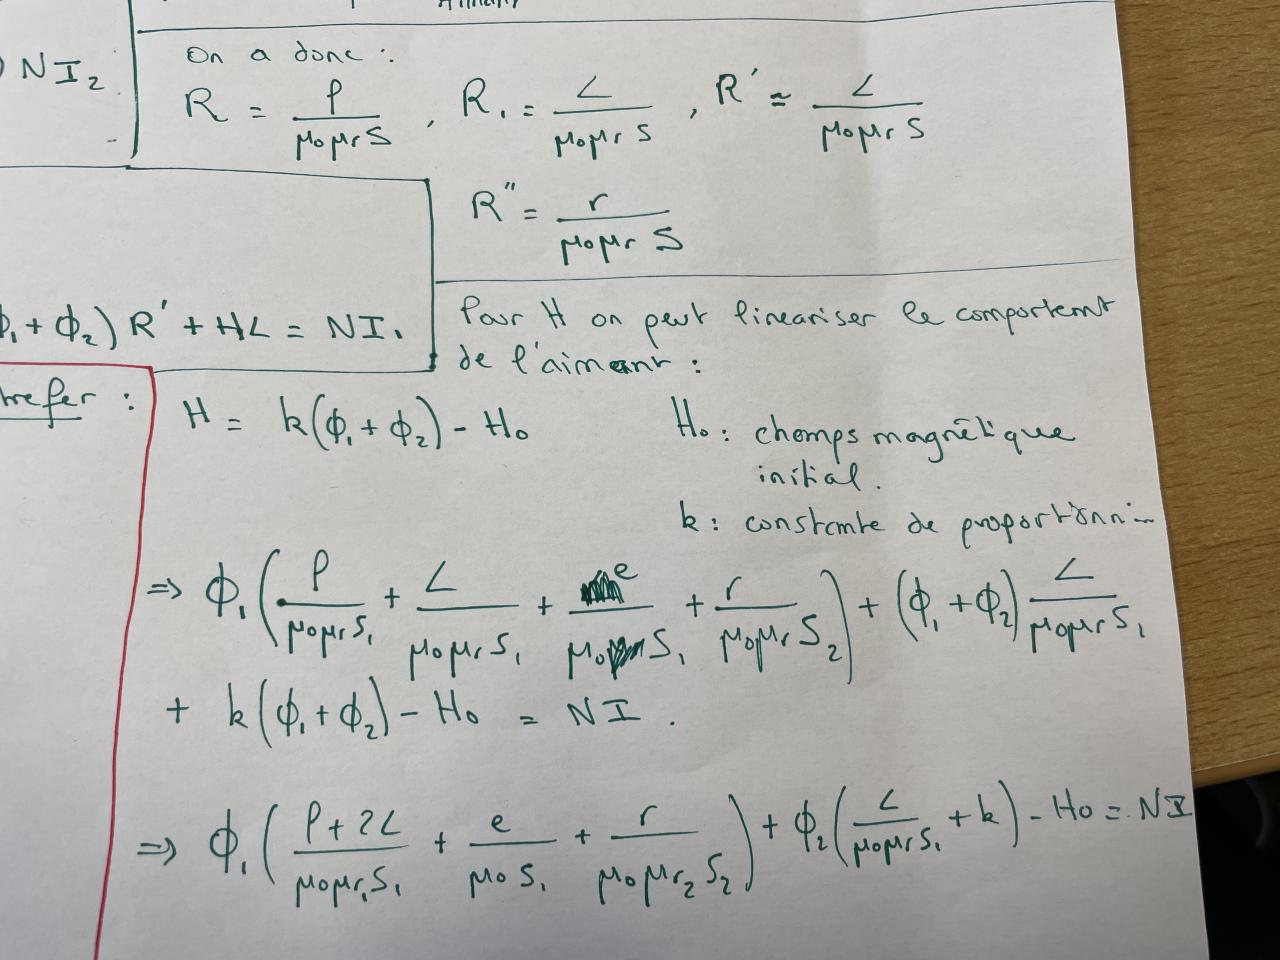 NI₂
On a donc :
R = ρ/(μ₀μᵣ S) , R₁ = L/(μ₀μᵣ S) , R' = L/(μ₀μᵣ S)
R" = r/(μ₀μᵣ S)
ϕ₁ + ϕ₂) R' + HL = NI₁
Pour H on peut lineariser le comportemt
de l'aimant :
trefer :
H = k(ϕ₁ + ϕ₂) - H₀
H₀ : champs magnétique
initial.
k : constante de proportionn
=> ϕ₁ (ρ/(μ₀μᵣ S₁) + L/(μ₀μᵣ S₁) + e/(μ₀ S₁) + r/(μ₀μᵣ S₂)) + (ϕ₁ + ϕ₂) L/(μ₀μᵣ S₁)
+ k(ϕ₁ + ϕ₂) - H₀ = NI .
=> ϕ₁ ((ρ + 2L)/(μ₀μᵣ₁ S₁) + e/(μ₀ S₁) + r/(μ₀μᵣ₂ S₂)) + ϕ₂ (L/(μ₀μᵣ S₁) + k) - H₀ = NI